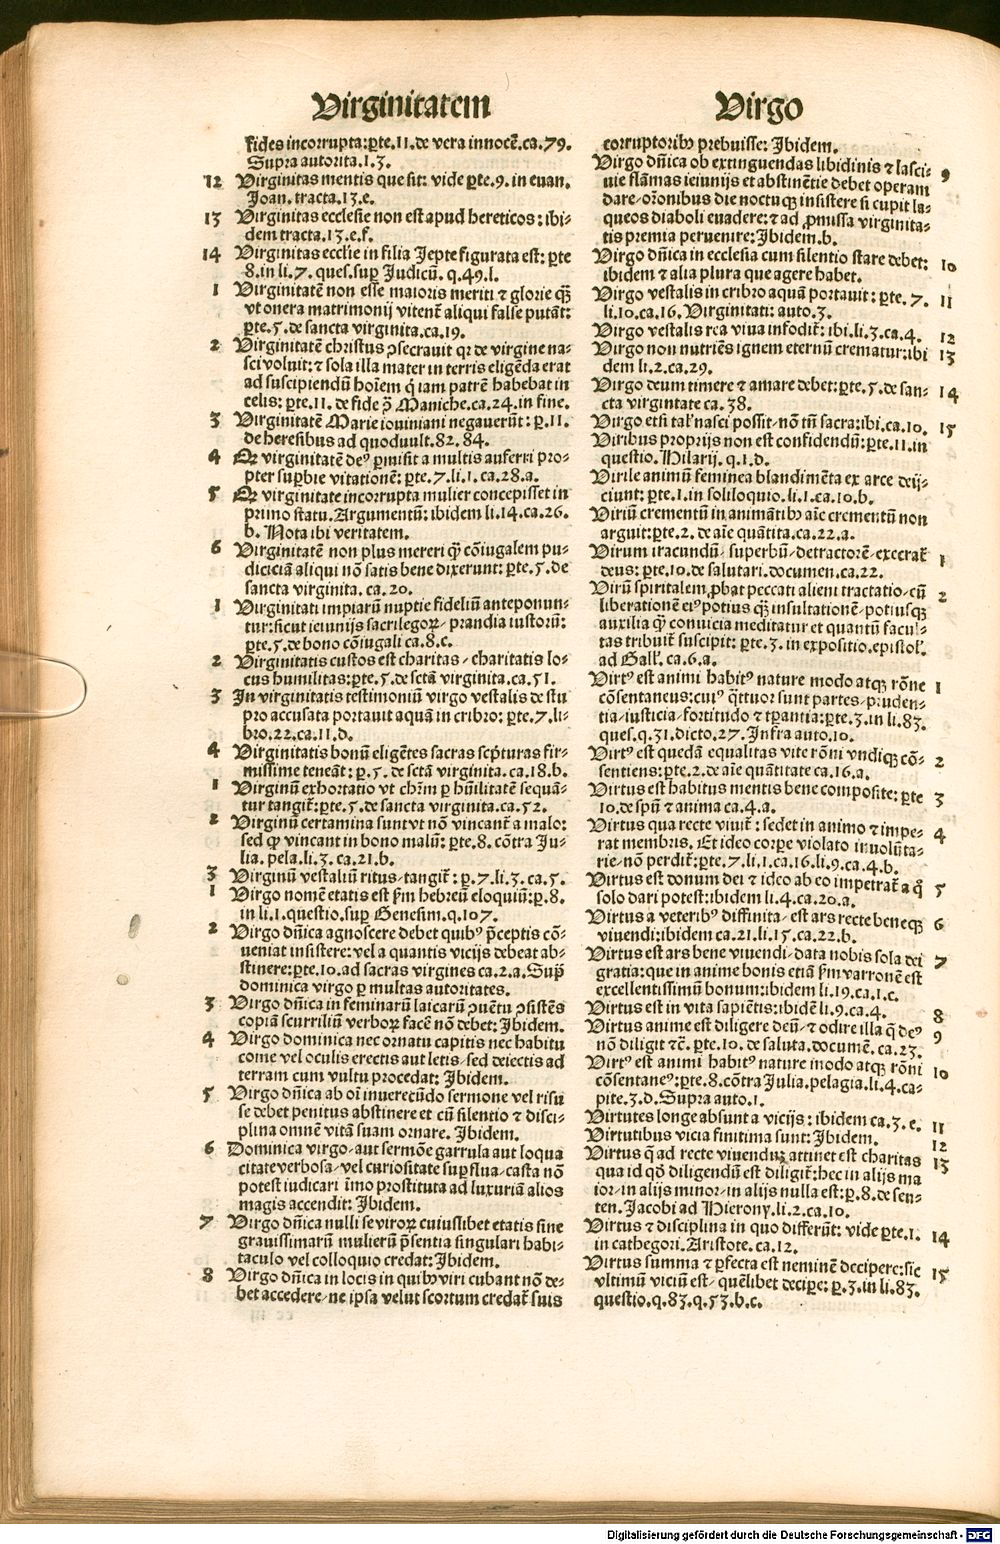 Virginitatem
fides incorrupta: ꝑte.11.de vera innocẽ.ca.79.
Supra autorita.1.3.
12 Virginitas mentis que sit: vide ꝑte.9. in euan.
Joan. tracta.13.e.
13 Virginitas ecclesie non est apud hereticos: ibi⸗
dem tracta.13.e.f.
14 Virginitas ecclie in filia Jepte figurata est: ꝑte
8.in li.7. ques.suꝑ Judicũ. q.49.l.
1 Virginitatẽ non esse maioris meriti ⁊ glorie q̃ꝫ
vt onera matrimonij vitent᷑ aliqui false putãt:
ꝑte.5.de sancta virginita.ca.19.
2 Virginitatẽ christus ꝯsecrauit qꝛ de virgine na⸗
sci voluit: ⁊ sola illa mater in terris eligẽda erat
ad suscipiendũ hoĩem q̇ iam patrẽ habebat in
celis: ꝑte.11. de fide ↄ̃ Maniche.ca.24.in fine.
3 Virginitatẽ Marie iouiniani negauerũt: ꝑ.11.
de heresibus ad quoduult.82. 84.
4 Qꝛ virginitatẽ deꝰ ꝑmisit a multis auferri pro⸗
pter suꝑbie vitationẽ: ꝑte.7.li.1. ca.28.a.
5 Qꝛ virginitate incorrupta mulier concepisset in
primo statu. Argumentũ: ibidem li.14.ca.26.
b. Nota ibi veritatem.
6 Virginitatẽ non plus mereri q̃ꝫ cõiugalem pu⸗
diciciã aliqui nõ satis bene dixerunt: ꝑte.5.de
sancta virginita. ca.20.
1 Virginitati impiarũ nuptie fideliũ anteponun⸗
tur: sicut ieiunijs sacrilegoꝝ⸗ prandia iustorũ:
ꝑte.5.de bono cõiugali ca.8.c.
2 Virginitatis custos est charitas⸗ charitatis lo⸗
cus humilitas: ꝑte.5.de sctã virginita.ca.51.
3 In virginitatis testimoniũ virgo vestalis de stu
pro accusata portauit aquã in cribro: ꝑte.7.li⸗
bro.22.ca.11.d.
4 Virginitatis bonũ eligẽtes sacras scṗturas fir⸗
missime teneãt: ꝑ.5. de sctã virginita.ca.18.b.
1 Virginũ exhortatio vt chr̃m ꝑ hũilitatẽ sequã⸗
tur tangit᷑: ꝑte.5.de sancta virginita.ca.52.
2 Virginũ certamina sunt vt nõ vincant᷑ a malo:
sed ꝙ vincant in bono malũ: ꝑte.8. cõtra Ju⸗
lia. pela.li.3. ca.21.b.
3 Virginũ vestaliũ ritus⸗ tangit᷑: ꝑ.7.li.3. ca.5.
1 Virgo nomẽ etatis est ẜm hebreũ eloquiũ: ꝑ.8.
in li.1.questio.suꝑ Genesim.q.107.
2 Virgo dñica agnoscere debet quibꝰ p̃ceptis cõ⸗
ueniat insistere: vel a quantis vicijs debeat ab⸗
stinere: ꝑte.10.ad sacras virgines ca.2.a.Supᷓ
dominica virgo ꝑ multas autoritates.
3 Virgo dñica in feminarũ laicarũ ꝯuẽtu ꝯsistẽs
copiã scurriliũ verboꝝ facẽ nõ debet: Jbidem.
4 Virgo dominica nec ornatu capitis nec habitu
come vel oculis erectis aut letis⸗ sed deiectis ad
terram cum vultu procedat: Jbidem.
5 Virgo dñica ab oĩ inuerecũdo sermone vel risu
se debet penitus abstinere et cũ silentio ⁊ disci⸗
plina omnẽ vitã suam ornare. Jbidem.
6 Dominica virgo⸗ aut sermõe garrula aut loqua
citate verbosa⸗ vel curiositate suꝑflua⸗ casta nõ
potest iudicari ĩmo prostituta ad luxuriã alios
magis accendit: Jbidem.
7 Virgo dñica nulli se viroꝝ cuiuslibet etatis sine
grauissimarũ mulierũ p̃sentia singulari habi⸗
taculo vel colloquio credat: Jbidem.
8 Virgo dñica in locis in quibꝰ viri cubant nõ de⸗
bet accedere⸗ ne ipsa velut scortum credat᷑ suis
Virgo
corruptoribꝰ prebuisse: Jbidem.
Virgo dñica ob extinguendas libidinis ⁊ lasci⸗ 9
uie flãmas ieiunijs et abstinẽtie debet operam
dare⸗ orõnibus die noctuqꝫ insistere si cupit la⸗
queos diaboli euadere: ⁊ ad ꝓmissa virginita⸗
tis premia peruenire: Jbidem.b.
Virgo dñica in ecclesia cum silentio stare debet: 10
ibidem ⁊ alia plura que agere habet.
Virgo vestalis in cribro aquã portauit: ꝑte. 7. 11
li.10.ca.16. Virginitati: auto.3.
Virgo vestalis rea viua infodit᷑: ibi.li.3.ca.4. 12
Virgo non nutriẽs ignem eternũ crematur: ibi 13
dem li.2.ca.29.
Virgo deum timere ⁊ amare debet: ꝑte.5.de san⸗ 14
cta virgintate ca.38.
Virgo etsi tal' nasci possit⸗ nõ tñ sacra: ibi.ca.10. 15
Viribus proprijs non est confidendũ: ꝑte.11.in
questio. Hilarij. q.1.d.
Virile animũ feminea blandimẽta ex arce deij⸗
ciunt: ꝑte.1.in soliloquio.li.1.ca.10.b.
Viriũ crementũ in animãtibꝰ aĩe crementũ non
arguit: ꝑte.2. de aĩe quãtita.ca.22.a.
Virum iracundũ⸗ superbũ⸗ detractorẽ⸗ execrat᷑ 1
deus: ꝑte.10.de salutari.documen.ca.22.
Virũ spiritalem ꝓbat peccati alieni tractatio⸗ cũ 2
liberationẽ eiꝰ potius q̃ꝫ insultationẽ⸗ potiusqꝫ
auxilia q̃ꝫ conuicia meditatur et quantũ facul⸗
tas tribuit᷑ suscipit: ꝑte.3. in expositio.epistol'.
ad Gall'. ca.6.a.
Virtꝰ est animi habitꝰ nature modo atqꝫ rõne 1
cõsentaneus: cuiꝰ q̃ttuor sunt partes⸗ pruden⸗
tia⸗ iusticia⸗ fortitudo ⁊ tꝑantia: ꝑte.3.in li.83.
ques.q.31.dicto.27. Jnfra auto.10.
Virtꝰ est quedã equalitas vite rõni vndiqꝫ cõ⸗ 2
sentiens: ꝑte.2.de aĩe quãtitate ca.16.a.
Virtus est habitus mentis bene composite: ꝑte 3
10.de spũ ⁊ anima ca.4.a.
Virtus qua recte viuit᷑: sedet in animo ⁊ impe⸗ 4
rat membris. Et ideo corpe violato inuolũta⸗
rie⸗ nõ perdit᷑: ꝑte.7.li.1.ca.16.li.9.ca.4.b.
Virtus est donum dei ⁊ ideo ab eo impetrat᷑ a q̊ 5
solo dari potest: ibidem li.4.ca.20.a.
Virtus a veteribꝰ diffinita⸗ est ars recte beneqꝫ 6
viuendi: ibidem ca.21.li.15.ca.22.b.
Virtus est ars bene viuendi⸗ data nobis sola dei 7
gratia: que in anime bonis etiã ẜm varronẽ est
excellentissimũ bonum: ibidem li.19.ca.1.c.
Virtus est in vita sapiẽtis: ibidẽ li.9.ca.4. 8
Virtus anime est diligere deũ⸗ ⁊ odire illa q̃ deꝰ 9
nõ diligit ⁊c̃. ꝑte.10. de saluta.documẽ. ca.23.
Virtꝰ est animi habitꝰ nature modo atqꝫ rõni 10
cõsentaneꝰ: ꝑte.8.cõtra Julia.pelagia.li.4.ca⸗
pite.3.d.Supra auto.1.
Virtutes longe absunt a vicijs: ibidem ca.3.e. 11
Virtutibus vicia finitima sunt: Jbidem. 12
Virtus q̃ ad recte viuendũ attinet est charitas 13
qua id qõ diligendũ est diligit᷑: hec in alijs ma
ior⸗ in alijs minor⸗ in alijs nulla est: ꝑ.8.de sen⸗
ten. Jacobi ad Hierony.li.2.ca.10.
Virtus ⁊ disciplina in quo differũt: vide ꝑte.1. 14
in cathegori.Aristote.ca.12.
Virtus summa ⁊ ꝑfecta est neminẽ decipere: sic 15
vltimũ viciũ est⸗ quẽlibet deciꝑe: ꝑ.3.in li.83.
questio.q.83.q.53.b.c.
Digitalisierung gefördert durch die Deutsche Forschungsgemeinschaft - DFG